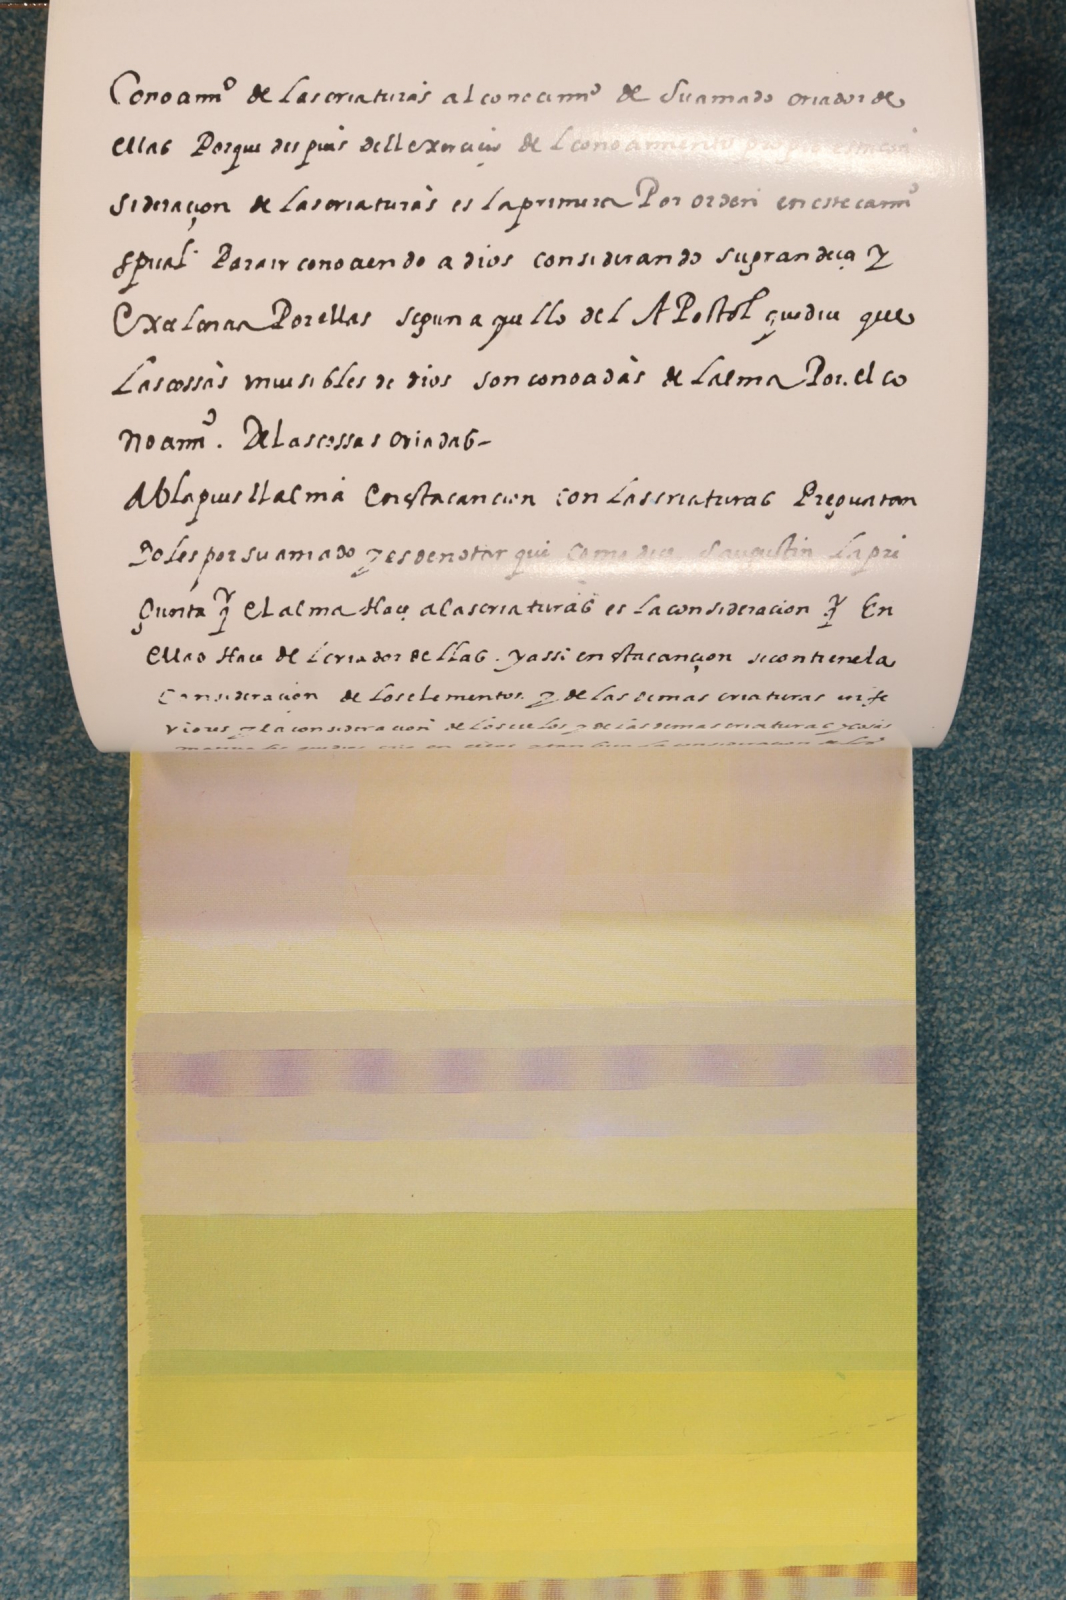 Conocimi.º de las criaturas al conocimi.º de su amado criador de
ellas Porque despues del exercicio de l conocimiento propio esta con
sideraçion de las criaturas es la primera Por orden en este camin.º
spual. Para ir conociendo a dios considerando su grandeça y
Excelencia Por ellas segun aquello del APostol que dice que
Las cossas invisibles de dios son conocidas de l alma Por. el co
nocimi.º. De las cossas criadas-
Abla pues el alma En esta cancion con las criaturas Preguntan
Doles por su amado y es de notar que como dice S augustin la pre
gunta q el alma Haçe a las criaturas es la consideracion q En
ellas Hace de l criador de llas. y assi en esta cançion se contiene la
Consideracion de los elementos y de las demas criaturas infe
riores y la consideracion de los cielos y de las demas criaturas y cosas
materiales que dios crio en ellos y tambien la consideracion de los